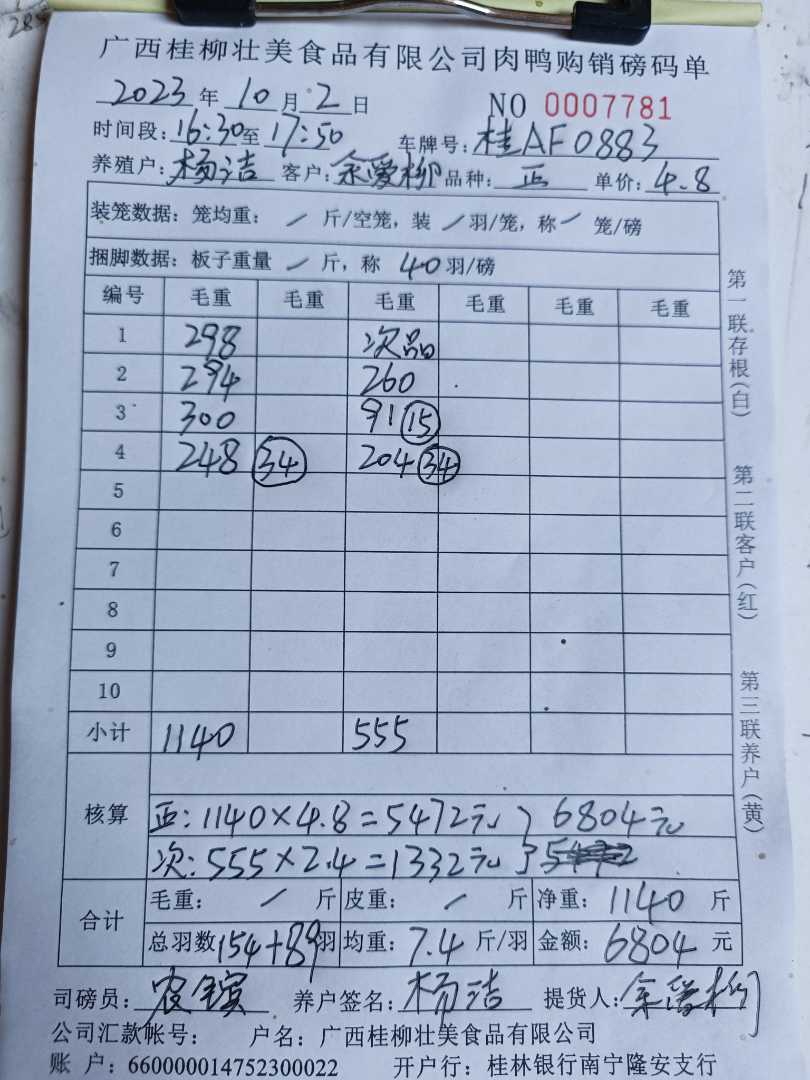 广西桂柳壮美食品有限公司肉鸭购销磅码单
2023年10月2日 NO 0007781
时间段:16:30至17:50 车牌号:桂AF0883
养殖户:杨洁 客户:余爱柳 品种:正 单价:4.8
装笼数据:笼均重:/斤/空笼,装/羽/笼,称/笼/磅
捆脚数据:板子重量/斤,称40羽/磅
编号 毛重 毛重 毛重 毛重 毛重 毛重
1 298 次品
2 294 260
3 300 91 15
4 248 34 204 34
5
6
7
8
9
10
小计 1140 555
核算
正:1140×4.8=5472元 } 6804元
次:555×2.4=1332元
合计
毛重:/斤 皮重:/斤 净重:1140斤
总羽数154+89羽 均重:7.4斤/羽 金额:6804元
司磅员: 养户签名:杨洁 提货人:余爱柳
公司汇款帐号: 户名:广西桂柳壮美食品有限公司
账户:660000014752300022 开户行:桂林银行南宁隆安支行
第一联存根(白)
第二联客户(红)
第三联养户(黄)